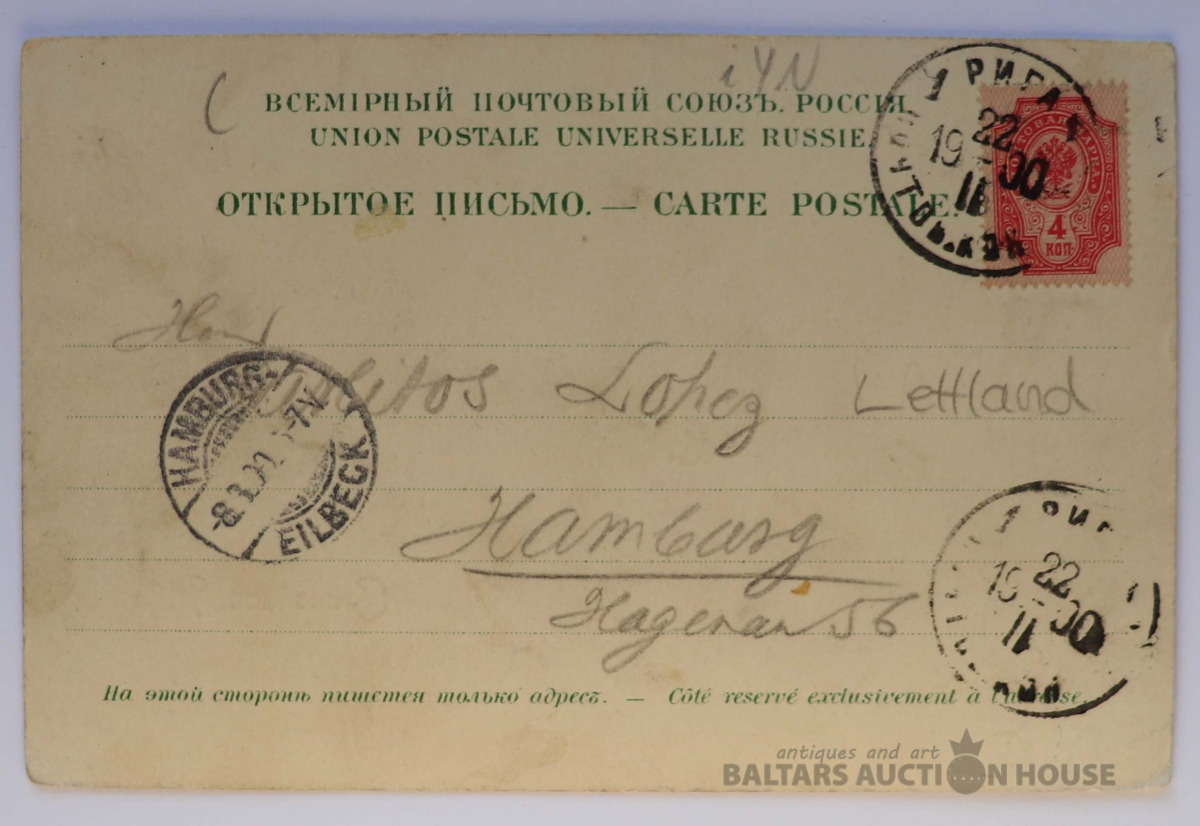 ВСЕМІРНЫЙ ПОЧТОВЫЙ СОЮЗЪ. РОССІЯ.
UNION POSTALE UNIVERSELLE RUSSIE.
ОТКРЫТОЕ ПИСЬМО. — CARTE POSTALE.
1 РИГА 1
22
19 00
II
ПОЧТОВАЯ МАРКА
4
КОП.
Lopez Lettland
HAMBURG-
EILBECK
Hamburg
Hagenau 56
1 РИГ
22
19 00
II
На этой сторонѣ пишется только адресъ. — Côté reservé exclusivement à l'adresse.
antiques and art
BALTARS AUCTION HOUSE